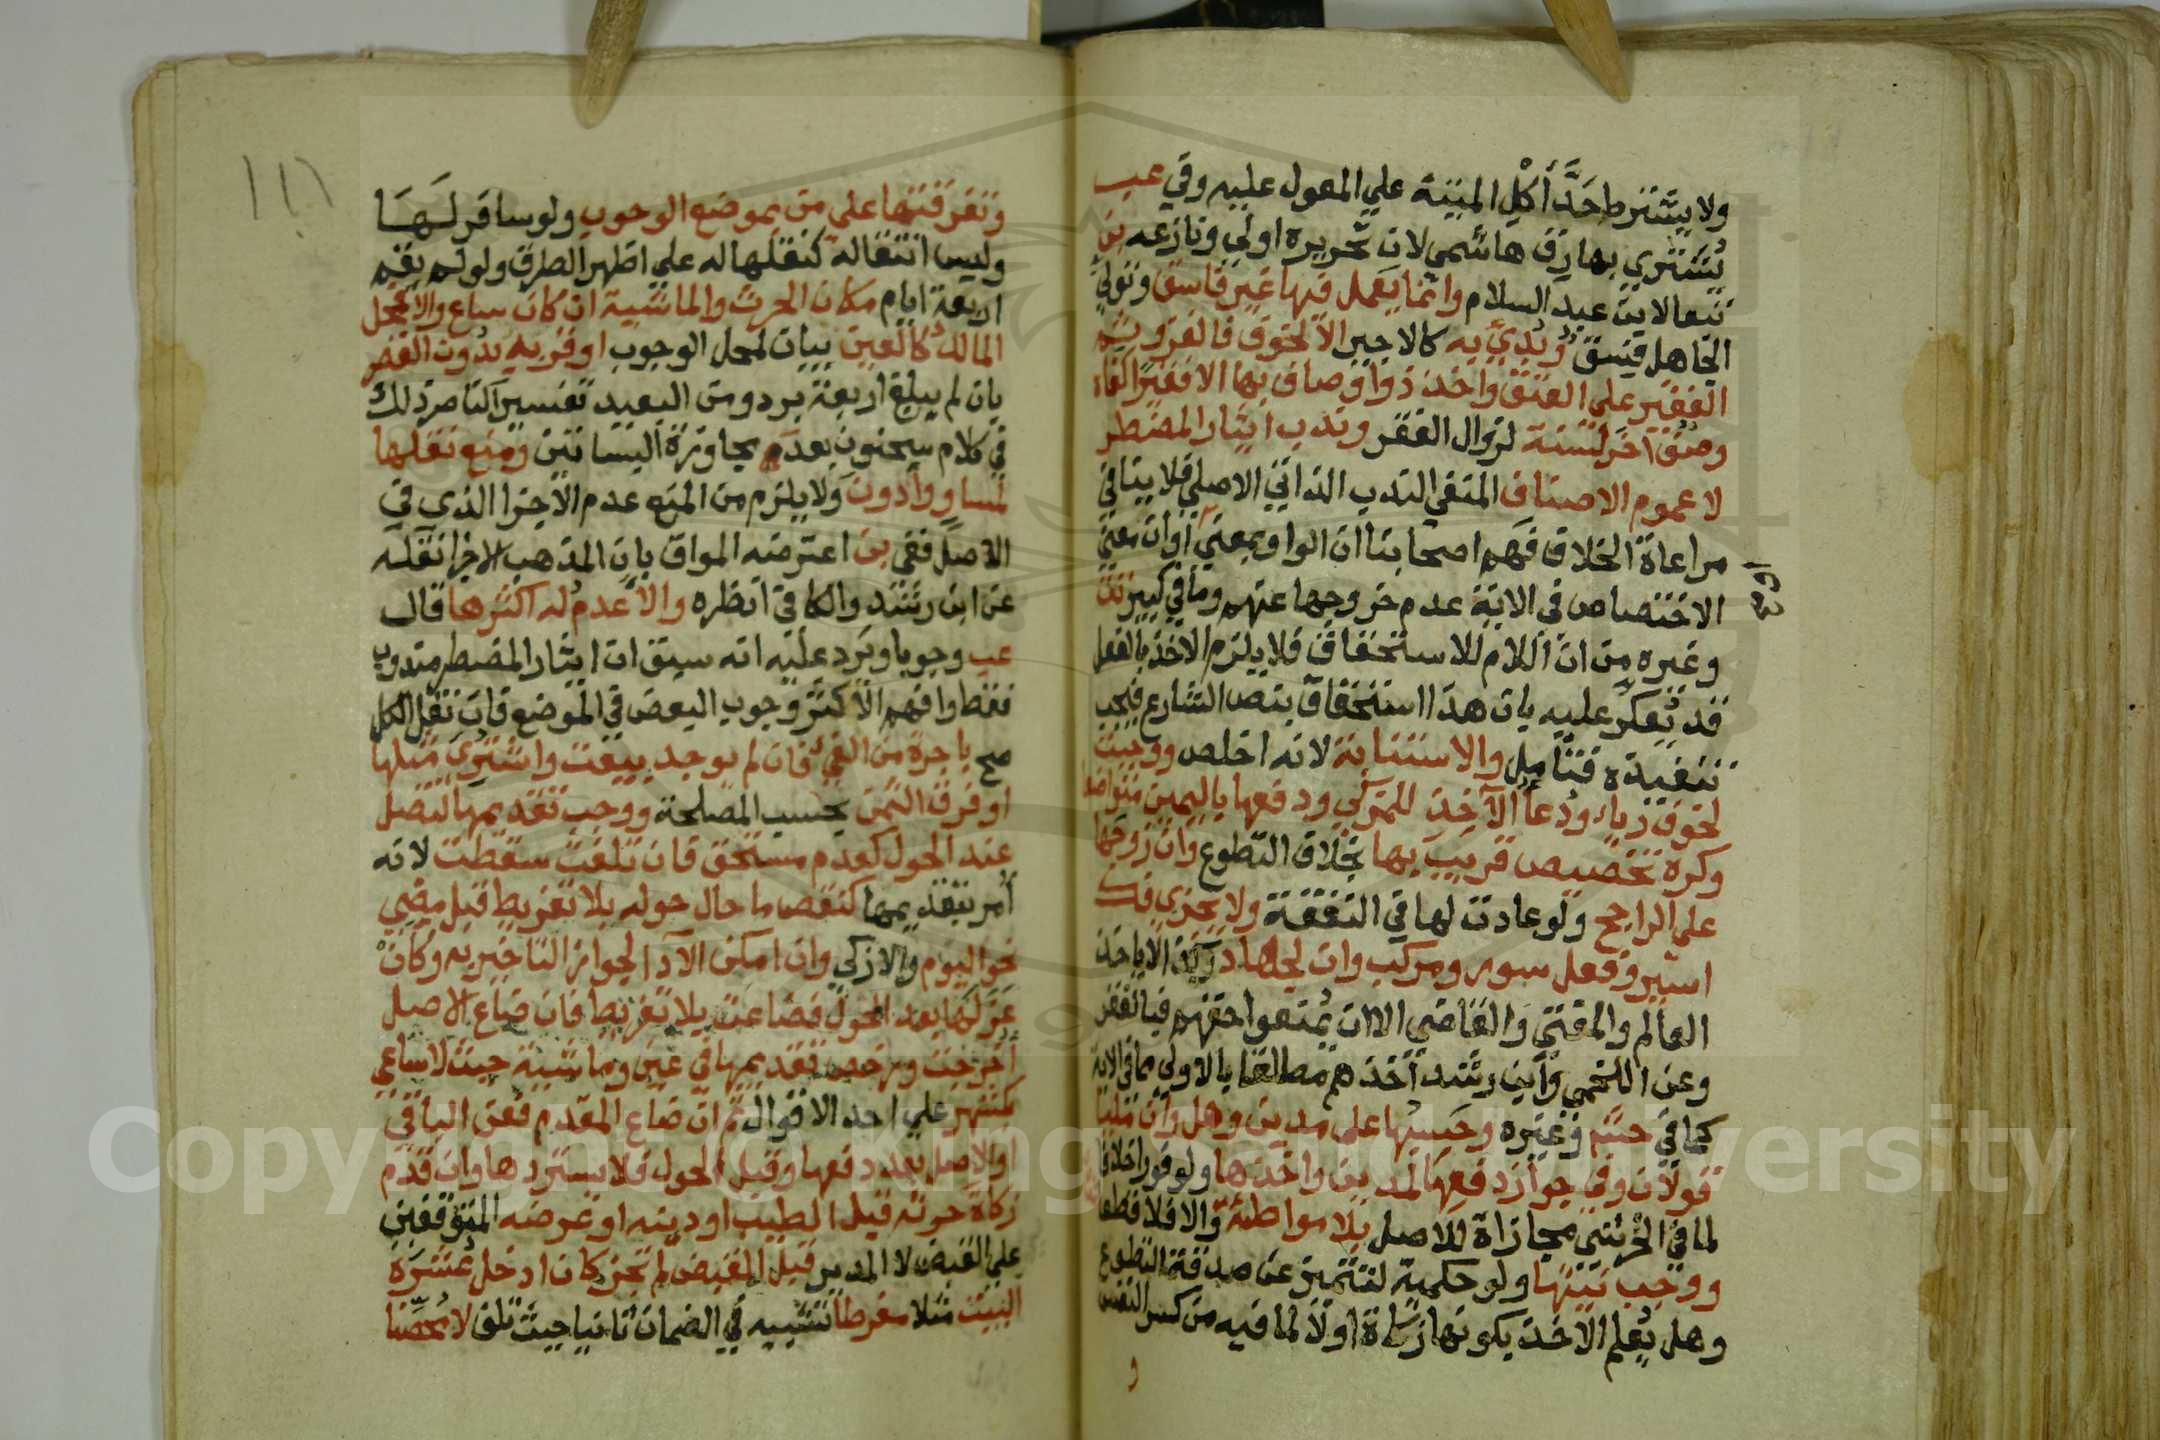 ولا يشترط حَدَّ أَكْلِ الميتة علي المعول عليه وفي عب
يُشتري بها رق هاشمي لان تحريره اولي ونازعه بن
تبعا لابن عبد السلام وانما يعمل فيها غير فاسق وتولي
الجاهل فسق وبُدِيَ به كالاجير الا لخوف فالغزو
الفقير علي العتق واخذ ذو اوصاف بها الا فقيرا كفاه
وصف اخر لسنة لزوال الفقر وندب ايثار المضطر
لا عموم الاصناف المنفي الندب الذاتي الاصلي فلا ينافي
مراعاة الخلاف فهم اصحابنا ان الواو بمعني أو أن معني
الاختصاص في الاية عدم خروجها عنهم وما في كبير تت
وغيره من ان اللام للاستحقاق فلا يلزم الاخذ بالفعل
قد يُعكر عليه بان هذا استحقاق بنص الشارع فيجب
تنفيذه فتامل والاستنابة لانه اخلص ووجبت
لخوف رياء ودعا الآخذ للمزكي ودفعها باليمين متواضعا
وكره تخصيص قريب بها بخلاف التطوع وان زوجها
علي الراجح ولو عادت لها في النفقة ولا يجزي فك
اسير وفعل سور ومركب وان لجهاد الا ياخذ
العالم والمفتي والقاضي الا ان يُمنعوا حقهم فبالفقر
وعن اللخمي وابن رشد أخذهم مطلقا بالاولي مما في الاية
كما في حش وغيره وحسبها علي مدين وهل وان مليا
قولان وفي جواز دفعها لمدين واخذها ولو فورا خلافا
لما في الخرشي مجازاة للاصل بلا مواطئة والا فلا قطعا
ووجب نيتها ولو حكمية لتتميز عن صدقة التطوع
وهل يُعلم الآخذ بكونها زكاة اولا لما فيه من كسر النفس
و
١١١
وتفرقتها علي من بموضع الوجوب ولو سافر لَهَا
وليس انتقاله كنقلها له علي اظهر الطرق ولو لم يقم
اربعة ايام مكان الحرث والماشية ان كان ساع والا فمحل
المالك كالعين بيان لمحل الوجوب او قربه بدون القصر
بان لم يبلغ اربعة برد ومن البعيد تفسير الناصر ذلك
في كلام سحنون بعدم مجاوزة البساتين ومنع نقلها
لمساو وادون ولا يلزم من المنع عدم الاجزا الذي في
الاصل ففي بن اعترضه المواق بان المذهب الاجزا نقله
عن ابن رشد والكافي انظره والا عدم له اكثرها قال
عب وجوبا ويرد عليه انه سبق ان ايثار المضطر مندوب
فقط وافهم الاكثر وجوب البعض في الموضع فان نقل الكل
صح باجرة من الفي فان لم يوجد بيعت واشتري مثلها
او فرق الثمن بحسب المصلحة ووجب تقديمها لتصل
عند الحول كعدم مستحق فان تلفت سقطت لانه
أمر بتقديمها كنقص ما حال حوله بلا تفريط قبل مضي
نحو اليوم والا زكي وان امكن الادا لجواز التاخير به وكان
عزلها بعد الحول فضاعت بلا تفريط فان ضاع الاصل
أخرجت ورخص تقديمها في عين وماشية حيث لا ساعي
كشهر علي احد الاقوال ثم ان ضاع المقدم فعن الباقي
او الاصل بعد دفعها وقبل الحول فلا يستردها وان قدم
زكاة حرثه قبل الطيب او دينه او عرضه المتوقفين
علي القبض لا المدير قبل القبض لم تجز كان ادخل عُشره
البيت مثلا مفرطا تشبيه في الضمان ثانيا حيث تلف لا مُحصِّنا